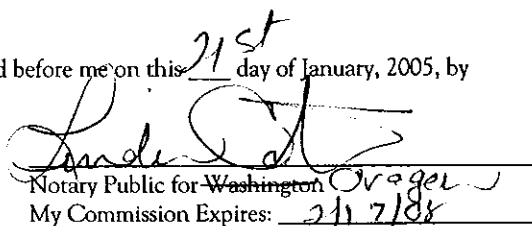 d before me on this 21st day of January, 2005, by
Notary Public for Washington Oragon
My Commission Expires: 2/17/08